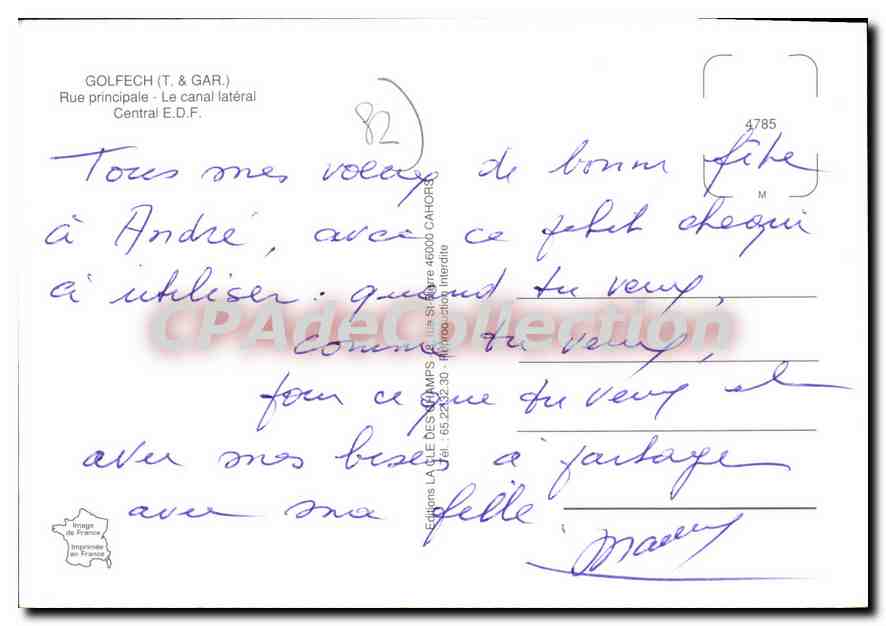 GOLFECH (T. & GAR.)
Rue principale - Le canal latéral
Central E.D.F.
82
4785
M
Tous mes voeux de bonne fête
à André, avec ce petit chequi
à utiliser : quand tu veux,
comme tu veux,
pour ce que tu veux et
avec mes bises à partager
avec ma fille.
Editions LA CLE DES CHAMPS - rue St-Pierre 46000 CAHORS
Tél. : 65.22.32.30 - Reproduction Interdite
Image
de France
Imprimée
en France
CPAdeCollection